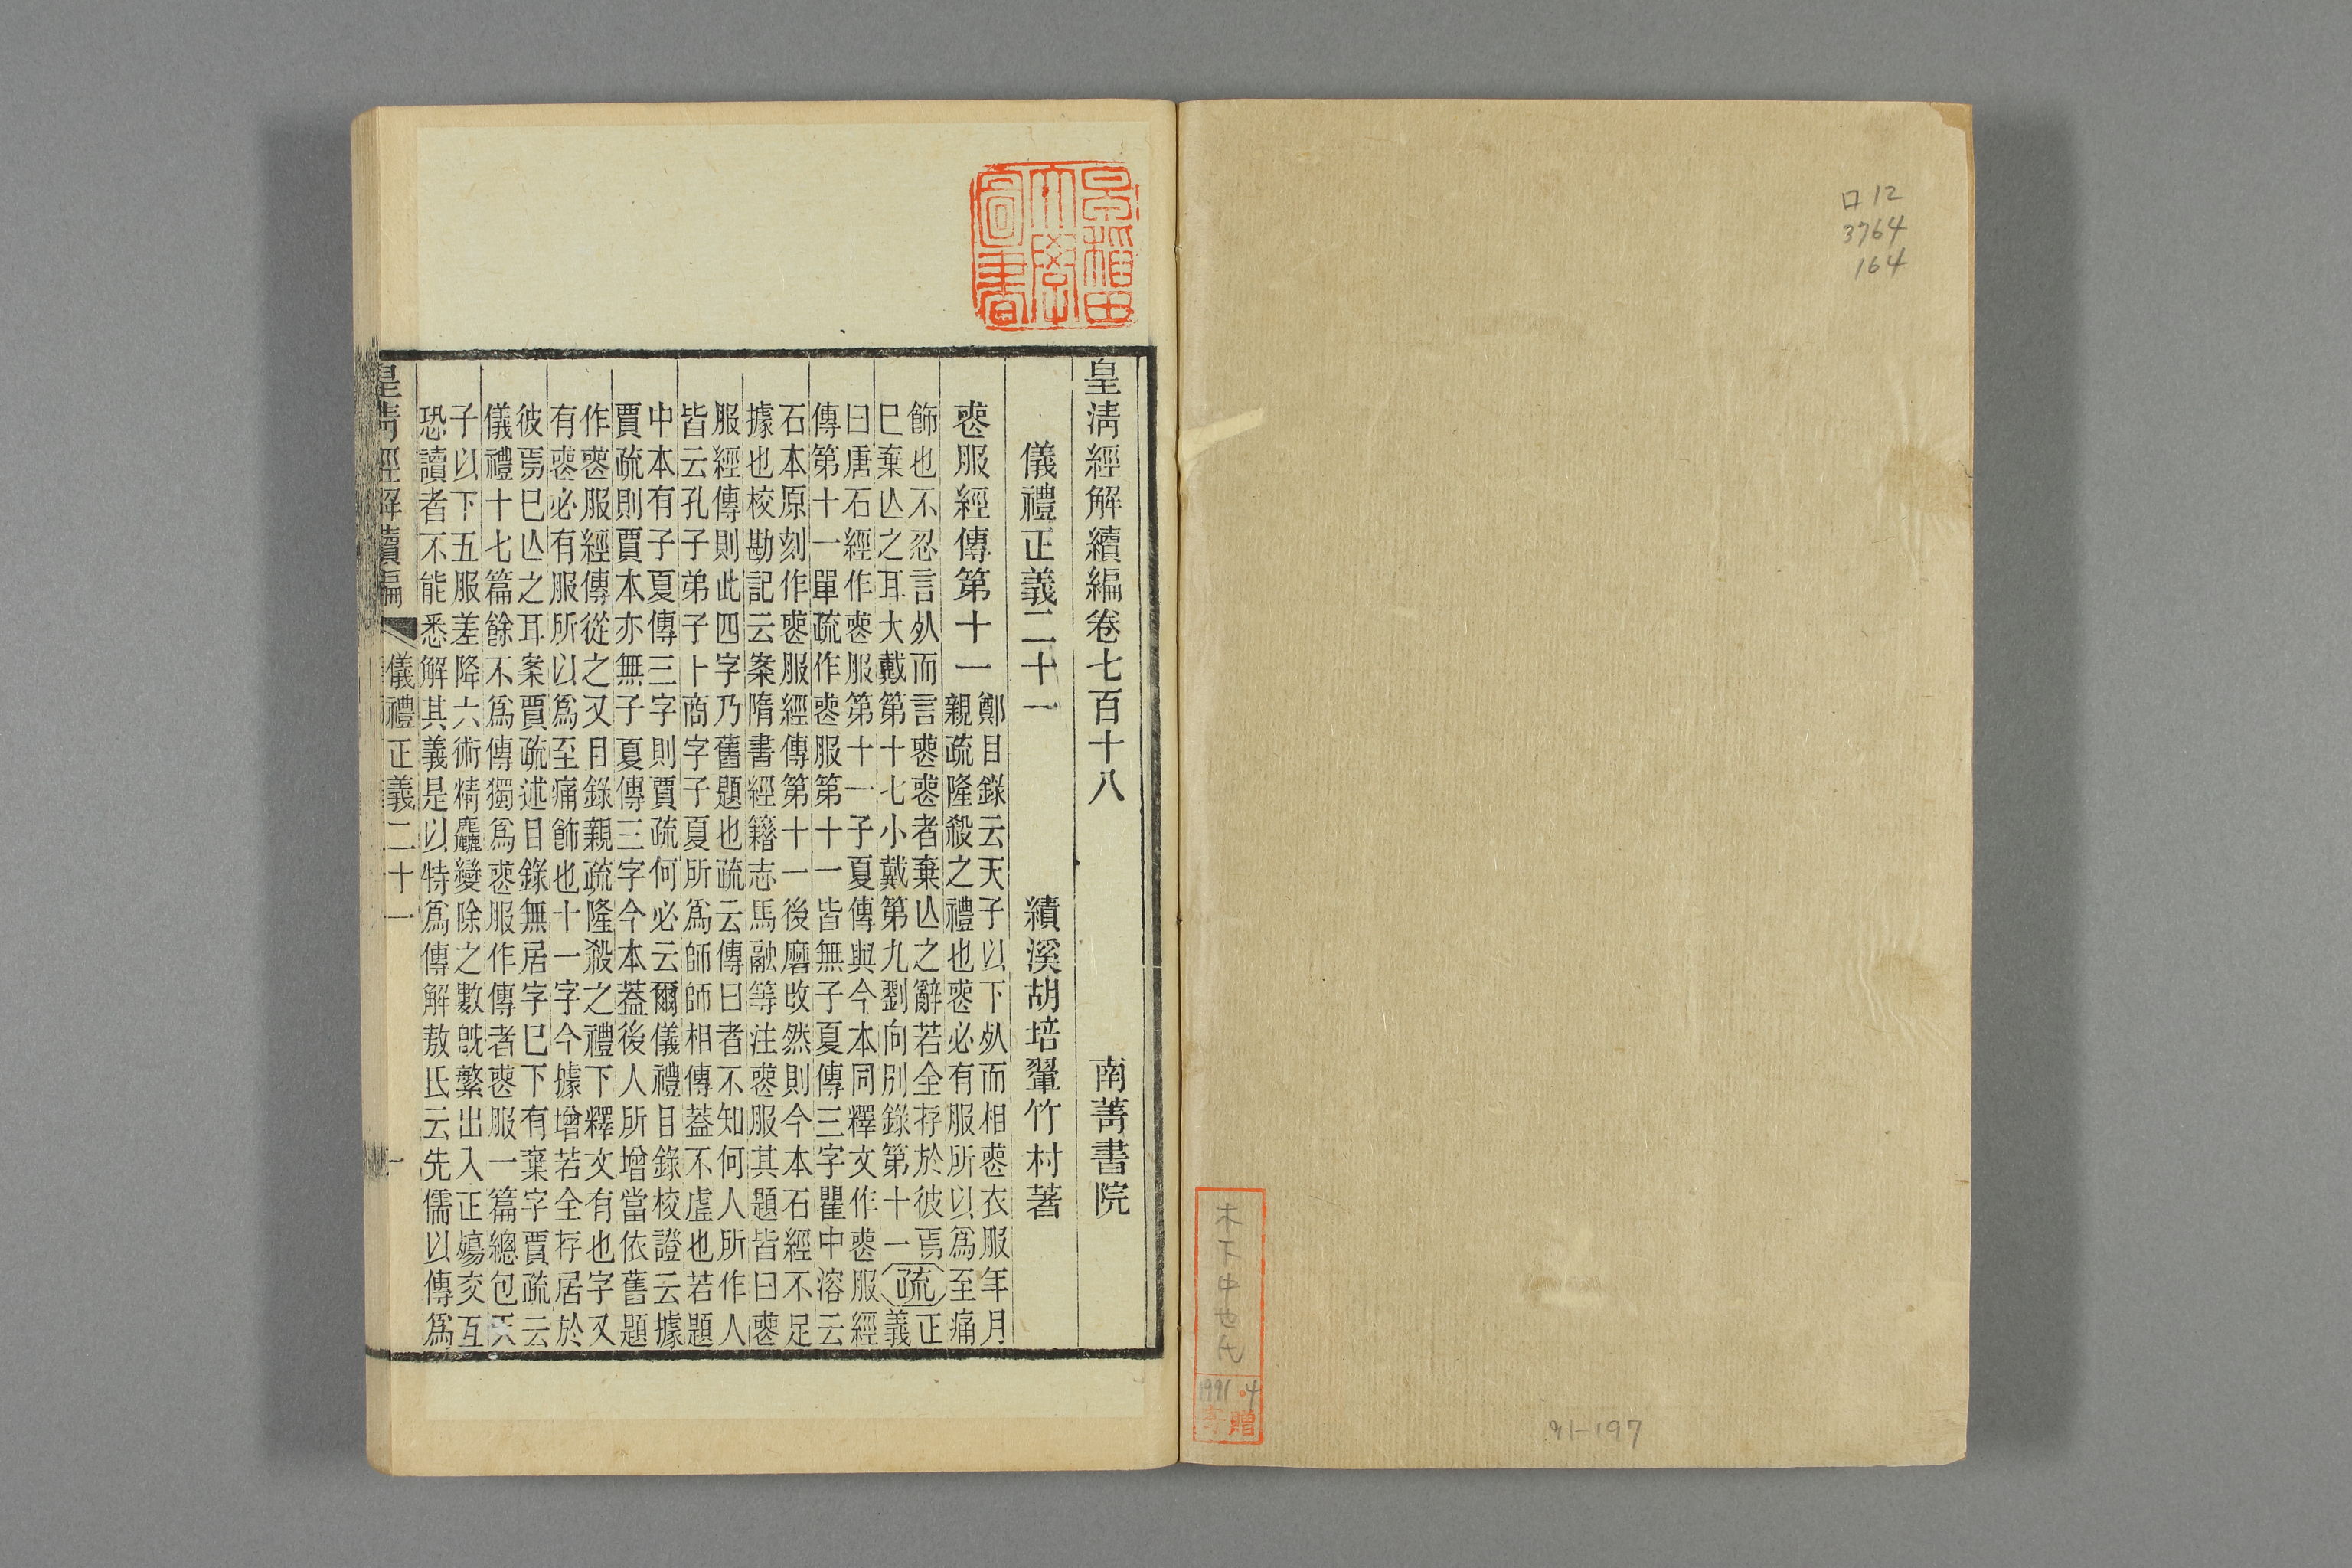 口12
3764
164
木下中也氏
1991.4
寄贈
91-197
早稲田大學圖書
皇淸經解續編卷七百十八
南菁書院
儀禮正義二十一
績溪胡培翬竹村著
喪服經傳第十一
鄭目錄云天子以下𣦸而相喪衣服年月
親疏隆殺之禮也喪必有服所以爲至痛
飾也不忍言𣦸而言喪喪者棄亾之辭若全存於彼焉疏正
巳棄亾之耳大戴第十七小戴第九劉向別錄第十一義
曰唐石經作喪服第十一子夏傳與今本同釋文作喪服經
傳第十一單疏作喪服第十一皆無子夏傳三字瞿中溶云
石本原刻作喪服經傳第十一後磨改然則今本石經不足
據也校勘記云案隋書經籍志馬融等注喪服其題皆曰喪
服經傳則此四字乃舊題也疏云傳曰者不知何人所作人
皆云孔子弟子卜商字子夏所爲師師相傳蓋不虛也若題
中本有子夏傳三字則賈疏何必云爾儀禮目錄校證云據
賈疏則賈本亦無子夏傳三字今本蓋後人所增當依舊題
作喪服經傳從之又目錄親疏隆殺之禮下釋文有也字又
有喪必有服所以爲至痛飾也十一字今據增若全存居於
彼焉巳亾之耳案賈疏述目錄無居字巳下有棄字賈疏云
儀禮十七篇餘不爲傳獨爲喪服作傳者喪服一篇總包天
子以下五服差降六術精麤變除之數旣繁出入正殤交互
恐讀者不能悉解其義是以特爲傳解敖氏云先儒以傳爲
皇淸經解續編
儀禮正義二十一
一